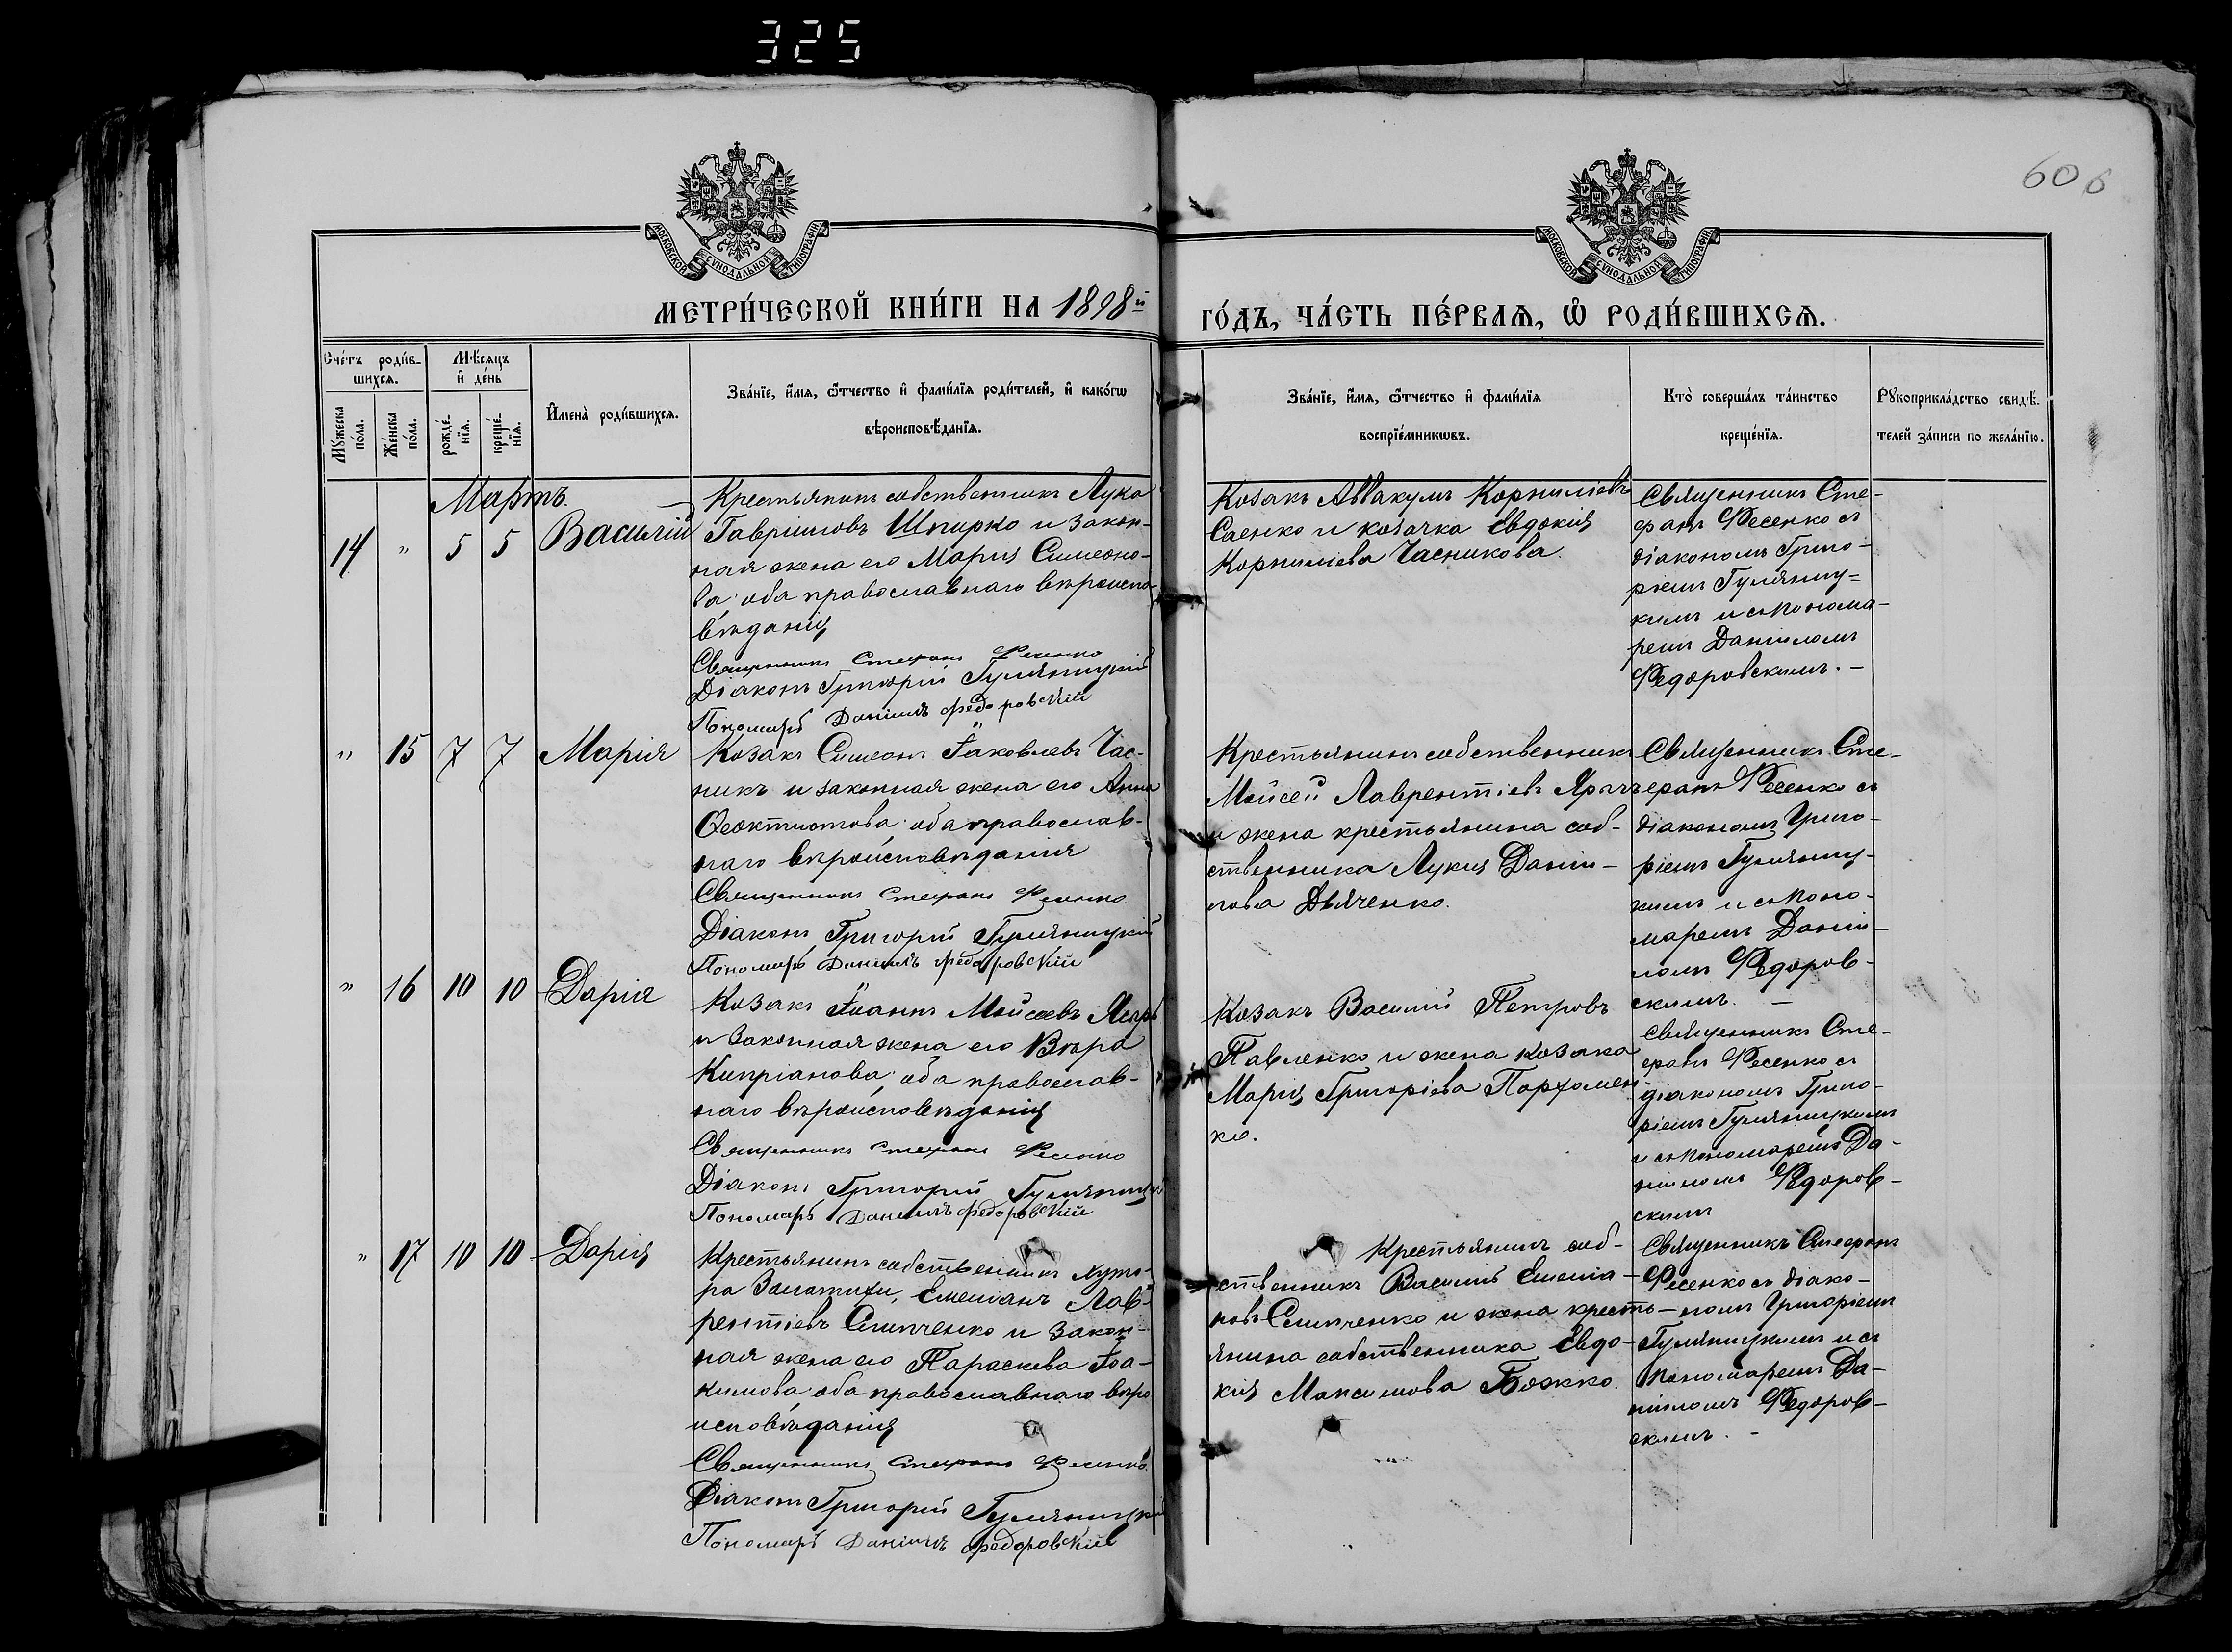 325
606
МОСКОВСКОЙ СУНОДАЛЬНОЙ ТИПОГРАФІИ
МОСКОВСКОЙ СУНОДАЛЬНОЙ ТИПОГРАФІИ
МЕТРИ́ЧЕСКОЙ КНИ́ГИ НА 1898й
ГО́ДЪ, ЧА́СТЬ ПЕ́РВАѦ, Ѡ҆ РОДИ́ВШИХСѦ.
Сче́тъ роди́в-
шихсѧ.
Мѣ́сѧцъ
и҆ де́нь
Мꙋ́жеска
по́ла.
Же́нска
по́ла.
рожде́-
нїѧ.
креще́-
нїѧ.
И҆мена̀ роди́вшихсѧ.
Зва́нїе, и҆́мѧ, ѻ҆́тчество и҆ фами́лїѧ роди́телей, и҆ како́гѡ
вѣроисповѣ́данїѧ.
Зва́нїе, и҆́мѧ, ѻ҆́тчество и҆ фами́лїѧ
воспрїе́мникѡвъ.
Кто̀ соверша́лъ та́инство
креще́нїѧ.
Рꙋкоприкла́дство свидѣ́-
телей за́писи по жела́нїю.
Мартъ.
14 " 5 5 Василій
Крестьянинъ собственникъ Лука
Гавриловъ Шпирко и закон-
ная жена его Марія Симеоно-
ва; оба православнаго вѣроиспо-
вѣданія
Священникъ Стефанъ Фесенко
Діаконъ Григорій Гуляницкій
Пономарь Даніилъ Федоровскій
Козакъ Аввакумъ Корниліевъ
Саенко и козачка Евдокія
Корниліева Часникова.
Священникъ Сте-
фанъ Фесенко съ
діакономъ Григо-
ріемъ Гуляниц-
кимъ и съ понома-
ремъ Даніиломъ
Федоровскимъ. -
" 15 7 7 Марія
Козакъ Симеонъ Іаковлевъ Час-
никъ и законная жена его Анна
Феоктистова; оба православ-
наго вѣроисповѣданія
Священникъ Стефанъ Фесенко
Діаконъ Григорій Гуляницкій
Пономарь Даніилъ Федоровскій
Крестьянинъ собственникъ
Мойсей Лаврентіевъ
и жена крестьянина соб-
ственника Лукія Даніи-
лова Дьяченко.
Священникъ Сте-
фанъ Фесенко съ
діакономъ Григо-
ріемъ Гуляниц-
кимъ и съ поно-
маремъ Даніи-
ломъ Федоров-
скимъ. -
" 16 10 10 Дарія
Козакъ Іоаннъ Мойсеевъ
и законная жена его Вѣра
Кипріанова; оба православ-
наго вѣроисповѣданія
Священникъ Стефанъ Фесенко
Діаконъ Григорій Гуляницкій
Пономарь Даніилъ Федоровскій
Козакъ Василій Петровъ
Павленко и жена козака
Марія Григоріева Пархомен-
ко.
Священникъ Сте-
фанъ Фесенко съ
діакономъ Григо-
ріемъ Гуляницкимъ
и съ пономаремъ Да-
ніиломъ Федоров-
скимъ
" 17 10 10 Дарія
Крестьянинъ собственникъ хуто-
ра Емеліанъ Лав-
рентіевъ Слипченко и закон-
ная жена его Параскева Іоа-
кимова; оба православнаго вѣро-
исповѣданія
Священникъ Стефанъ Фесенко
Діаконъ Григорій Гуляницкій
Пономарь Даніилъ Федоровскій
Крестьянинъ соб-
ственникъ Василій Емеліа-
новъ Слипченко и жена кресть-
янина собственника Евдо-
кія Максимова Божко.
Священникъ Стефанъ
Фесенко съ діако-
номъ Григоріемъ
Гуляницкимъ и съ
пономаремъ Да-
ніиломъ Федоров-
скимъ. -